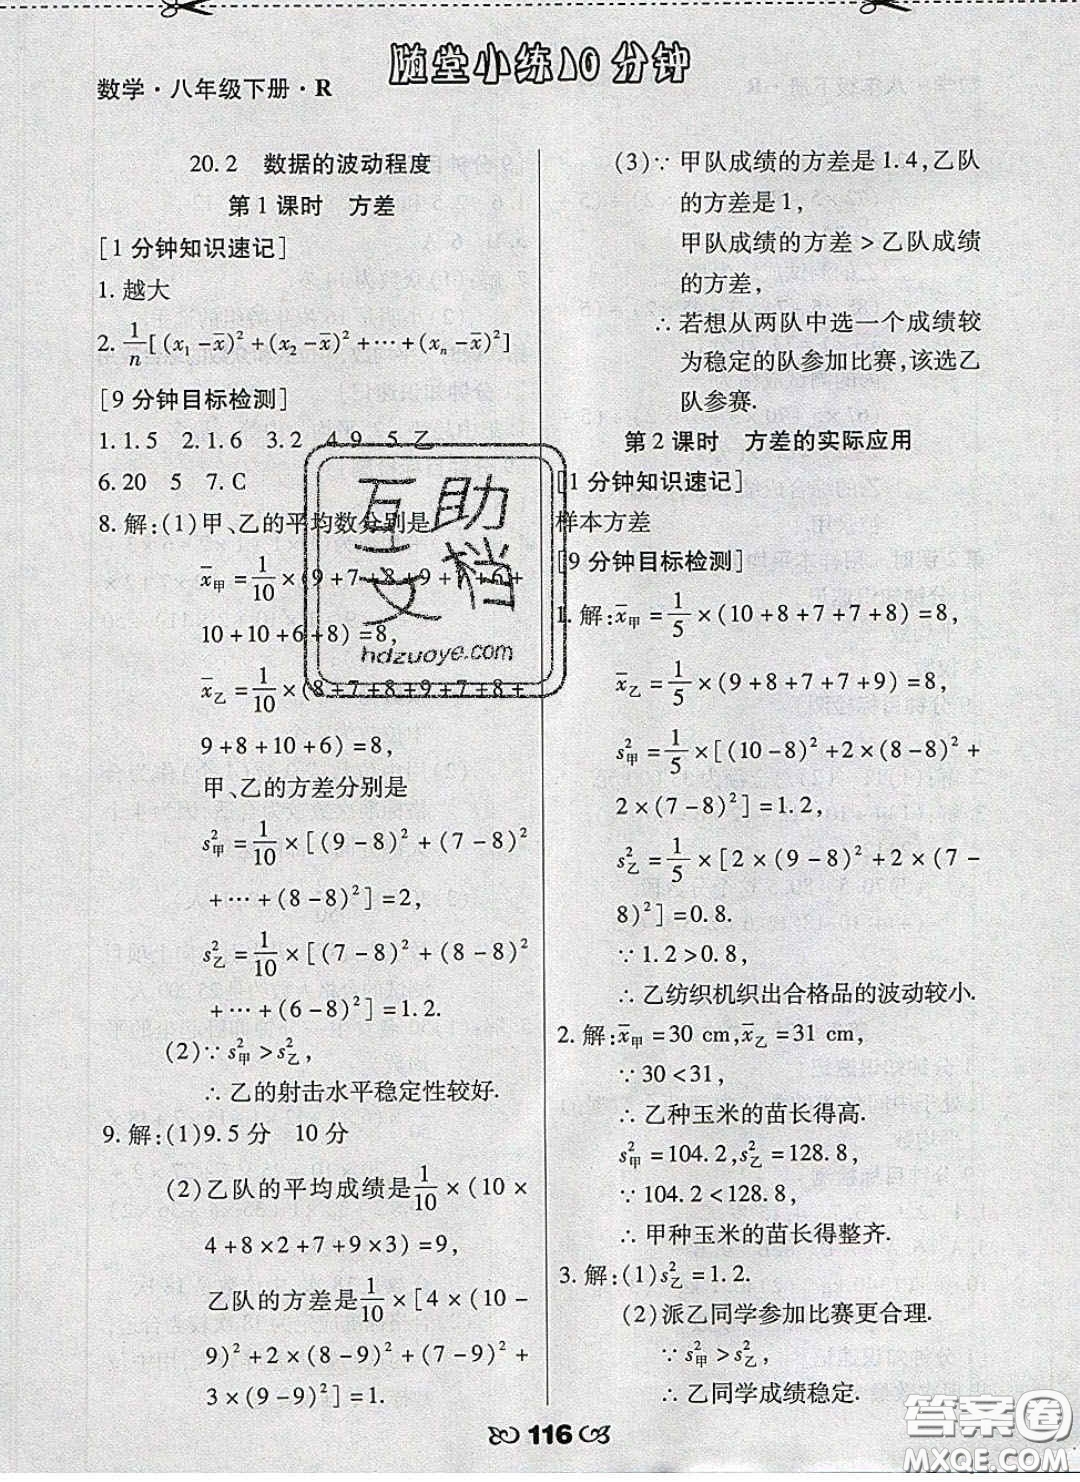 随堂小练10分钟
数学·八年级下册·R
20.2 数据的波动程度
第1课时 方差
[1分钟知识速记]
1.越大
2.1/n[(x₁-x̄)²+(x₂-x̄)²+…+(xₙ-x̄)²]
[9分钟目标检测]
1.1.5 2.1.6 3.2 4.9 5.乙
6.20 5 7.C
8.解:(1)甲、乙的平均数分别是
x̄甲=1/10×(9+7+8+9+
10+10+6+8)=8,
x̄乙=1/10×(8+7+8+9+7+8+
9+8+10+6)=8,
甲、乙的方差分别是
s²甲=1/10×[(9-8)²+(7-8)²
+…+(8-8)²]=2,
s²乙=1/10×[(7-8)²+(8-8)²
+…+(6-8)²]=1.2.
(2)∵s²甲>s²乙,
∴乙的射击水平稳定性较好.
9.解:(1)9.5分 10分
(2)乙队的平均成绩是1/10×(10×
4+8×2+7+9×3)=9,
乙队的方差是1/10×[4×(10-
9)²+2×(8-9)²+(7-9)²+
3×(9-9)²]=1.
(3)∵甲队成绩的方差是1.4,乙队
的方差是1,
甲队成绩的方差>乙队成绩
的方差,
∴若想从两队中选一个成绩较
为稳定的队参加比赛,该选乙
队参赛.
第2课时 方差的实际应用
[1分钟知识速记]
样本方差
[9分钟目标检测]
1.解:x̄甲=1/5×(10+8+7+7+8)=8,
x̄乙=1/5×(9+8+7+7+9)=8,
s²甲=1/5×[(10-8)²+2×(8-8)²+
2×(7-8)²]=1.2,
s²乙=1/5×[2×(9-8)²+2×(7-
8)²]=0.8.
∵1.2>0.8,
∴乙纺织机织出合格品的波动较小.
2.解:x̄甲=30 cm,x̄乙=31 cm,
∵30<31,
∴乙种玉米的苗长得高.
s²甲=104.2,s²乙=128.8,
∵104.2<128.8,
∴甲种玉米的苗长得整齐.
3.解:(1)s²乙=1.2.
(2)派乙同学参加比赛更合理.
∵s²甲>s²乙,
∴乙同学成绩稳定.
116
互助
文档
hdzuoye.com
答案圈
MXQE.COM